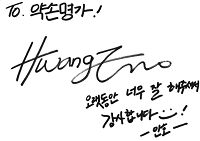 To. 약손명가!
Hwang Zno
오랫동안 너무 잘 해주셔서
감사합니다 !
- 인호 -